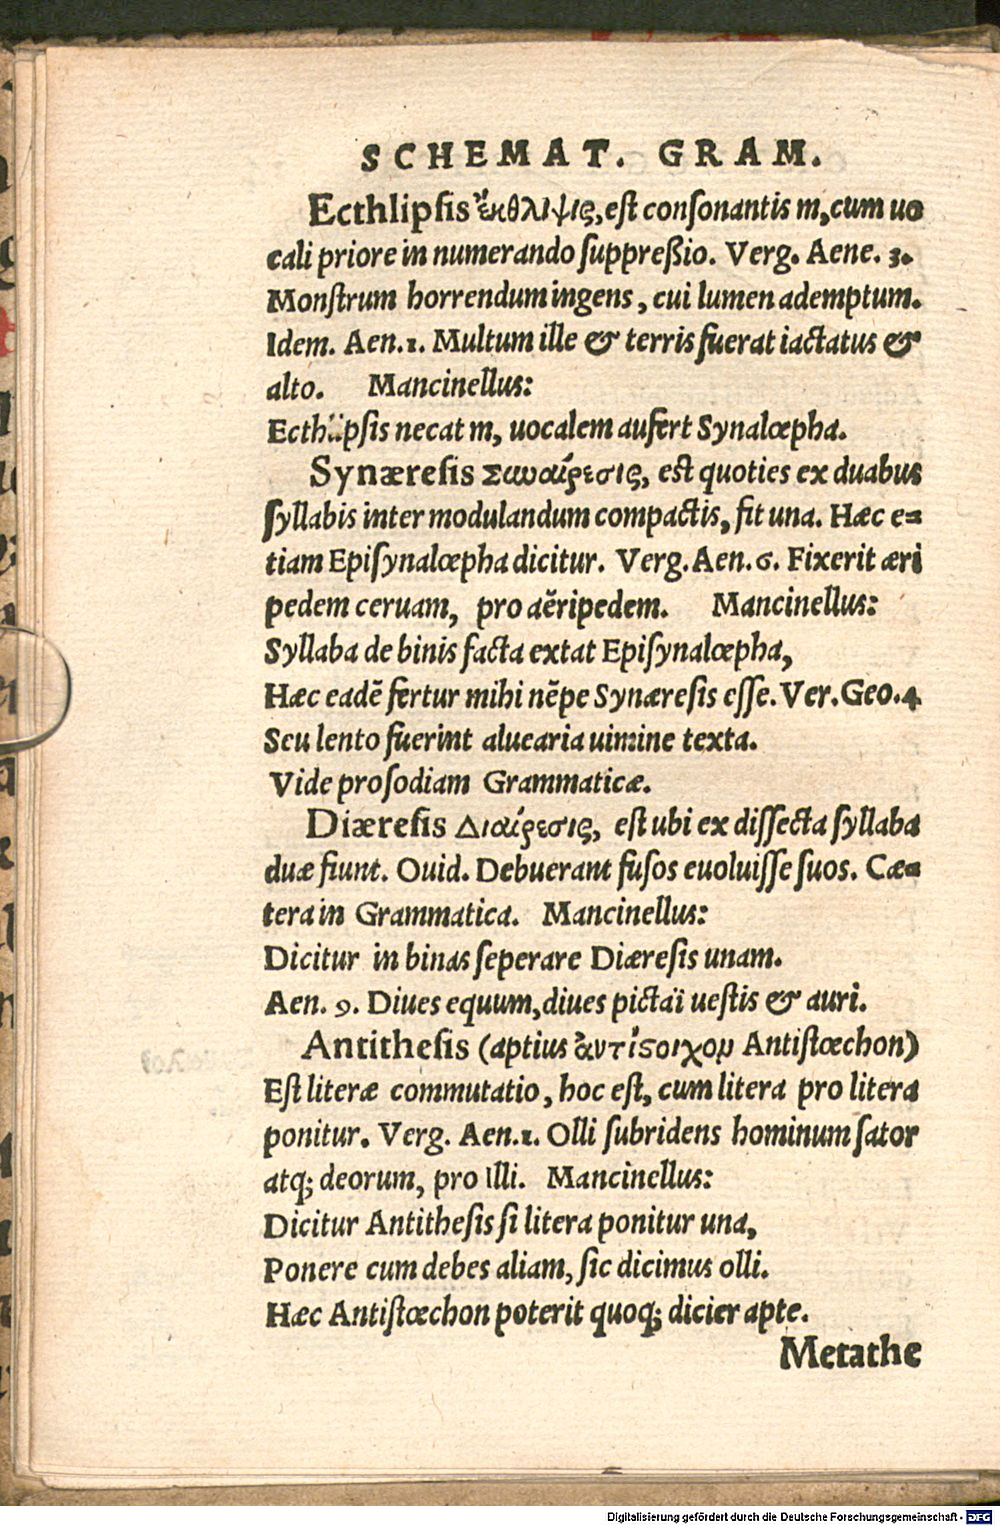 SCHEMAT. GRAM.
Ecthlipſis ἔκθλιψις, eſt conſonantis m, cum uo
cali priore in numerando ſuppreßio. Verg. Aene. 3.
Monſtrum horrendum ingens, cui lumen ademptum.
Idem. Aen.1. Multum ille & terris fuerat iactatus &
alto. Mancinellus:
Ecthlipſis necat m, uocalem aufert Synalœpha.
Synæreſis Συναίρεσις, eſt quoties ex duabus
ſyllabis inter modulandum compactis, fit una. Hæc e=
tiam Epiſynalœpha dicitur. Verg. Aen. 6. Fixerit æri
pedem ceruam, pro aëripedem. Mancinellus:
Syllaba de binis facta extat Epiſynalœpha,
Hæc eadē fertur mihi nēpe Synæreſis eſſe. Ver. Geo. 4
Seu lento fuerint aluearia uimine texta.
Vide proſodiam Grammaticæ.
Diæreſis Διαίρεσις, eſt ubi ex diſſecta ſyllaba
duæ fiunt. Ouid. Debuerant fuſos euoluiſſe ſuos. Cæ=
tera in Grammatica. Mancinellus:
Dicitur in binas ſeperare Diæreſis unam.
Aen. 9. Diues equum, diues pictaï ueſtis & auri.
Antitheſis (aptius ἀντίςοιχον Antiſtœchon)
Eſt literæ commutatio, hoc eſt, cum litera pro litera
ponitur. Verg. Aen.1. Olli ſubridens hominum ſator
atq; deorum, pro illi. Mancinellus:
Dicitur Antitheſis ſi litera ponitur una,
Ponere cum debes aliam, ſic dicimus olli.
Hæc Antiſtœchon poterit quoq; dicier apte.
Metathe
Digitalisierung gefördert durch die Deutsche Forschungsgemeinschaft - DFG